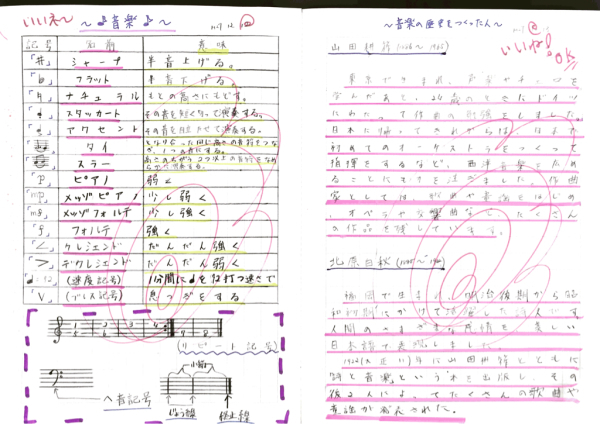 いいネ〜
〜♪音楽♪〜
記号 名前 意味
「#」 シャープ 半音上げる。
「♭」 フラット 半音下げる。
「♮」 ナチュラル もとの高さにもどす。
スタッカート その音を短く切って演奏する。
アクセント その音を目立たせて演奏する。
タイ となり合った同じ高さの音符をつなぎ、1つの音にする。
スラー 高さのちがう2つ以上の音符をなめらかに演奏する。
「p」 ピアノ 弱く
「mp」 メッゾピアノ 少し弱く
「mf」 メッゾフォルテ 少し強く
「f」 フォルテ 強く
「<」 クレシェンド だんだん強く
「>」 デクレシェンド だんだん弱く
(速度記号) 1分間に♩を打つ速さで
「V」 (ブレス記号) 息つぎをする
1 2 3 4
5 6
7 8
(リピート記号)
ヘ音記号
小節
じゅう線
終止線
〜音楽の歴史をつくった人〜
いいね!
OK
山田耕筰
東京で生まれ、
学んだあと、24歳のときドイツ
にわたって作曲の勉強をしました。
日本に帰ってきてからは、日本で
初めてのオーケストラをつくって
指揮をするなど、西洋音楽を広め
ることにも力を注ぎました。作曲
家としては、歌曲や童謡をはじめ
、オペラや交響曲などたくさん
の作品を残しています。
北原白秋
福岡で生まれ、明治後期から昭
和初期にかけて活躍した詩人です
人間のさまざまな感情を美しい
日本語で表現しました
1922(大正11)年に山田耕筰とともに
詩と音楽という本を出版し、その
後2人によってたくさんの歌曲や
童謡が発表された。